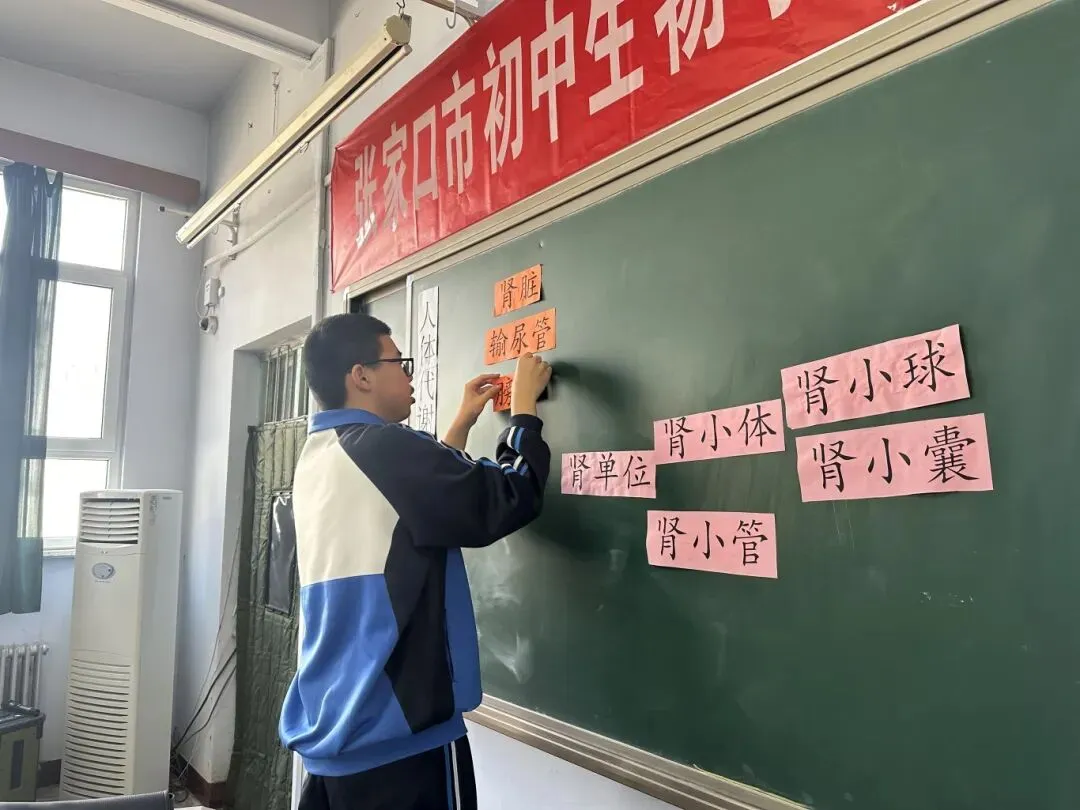 张家口市初中生物
人体代谢
肾脏
输尿管
肾单位
肾小体
肾小管
肾小球
肾小囊